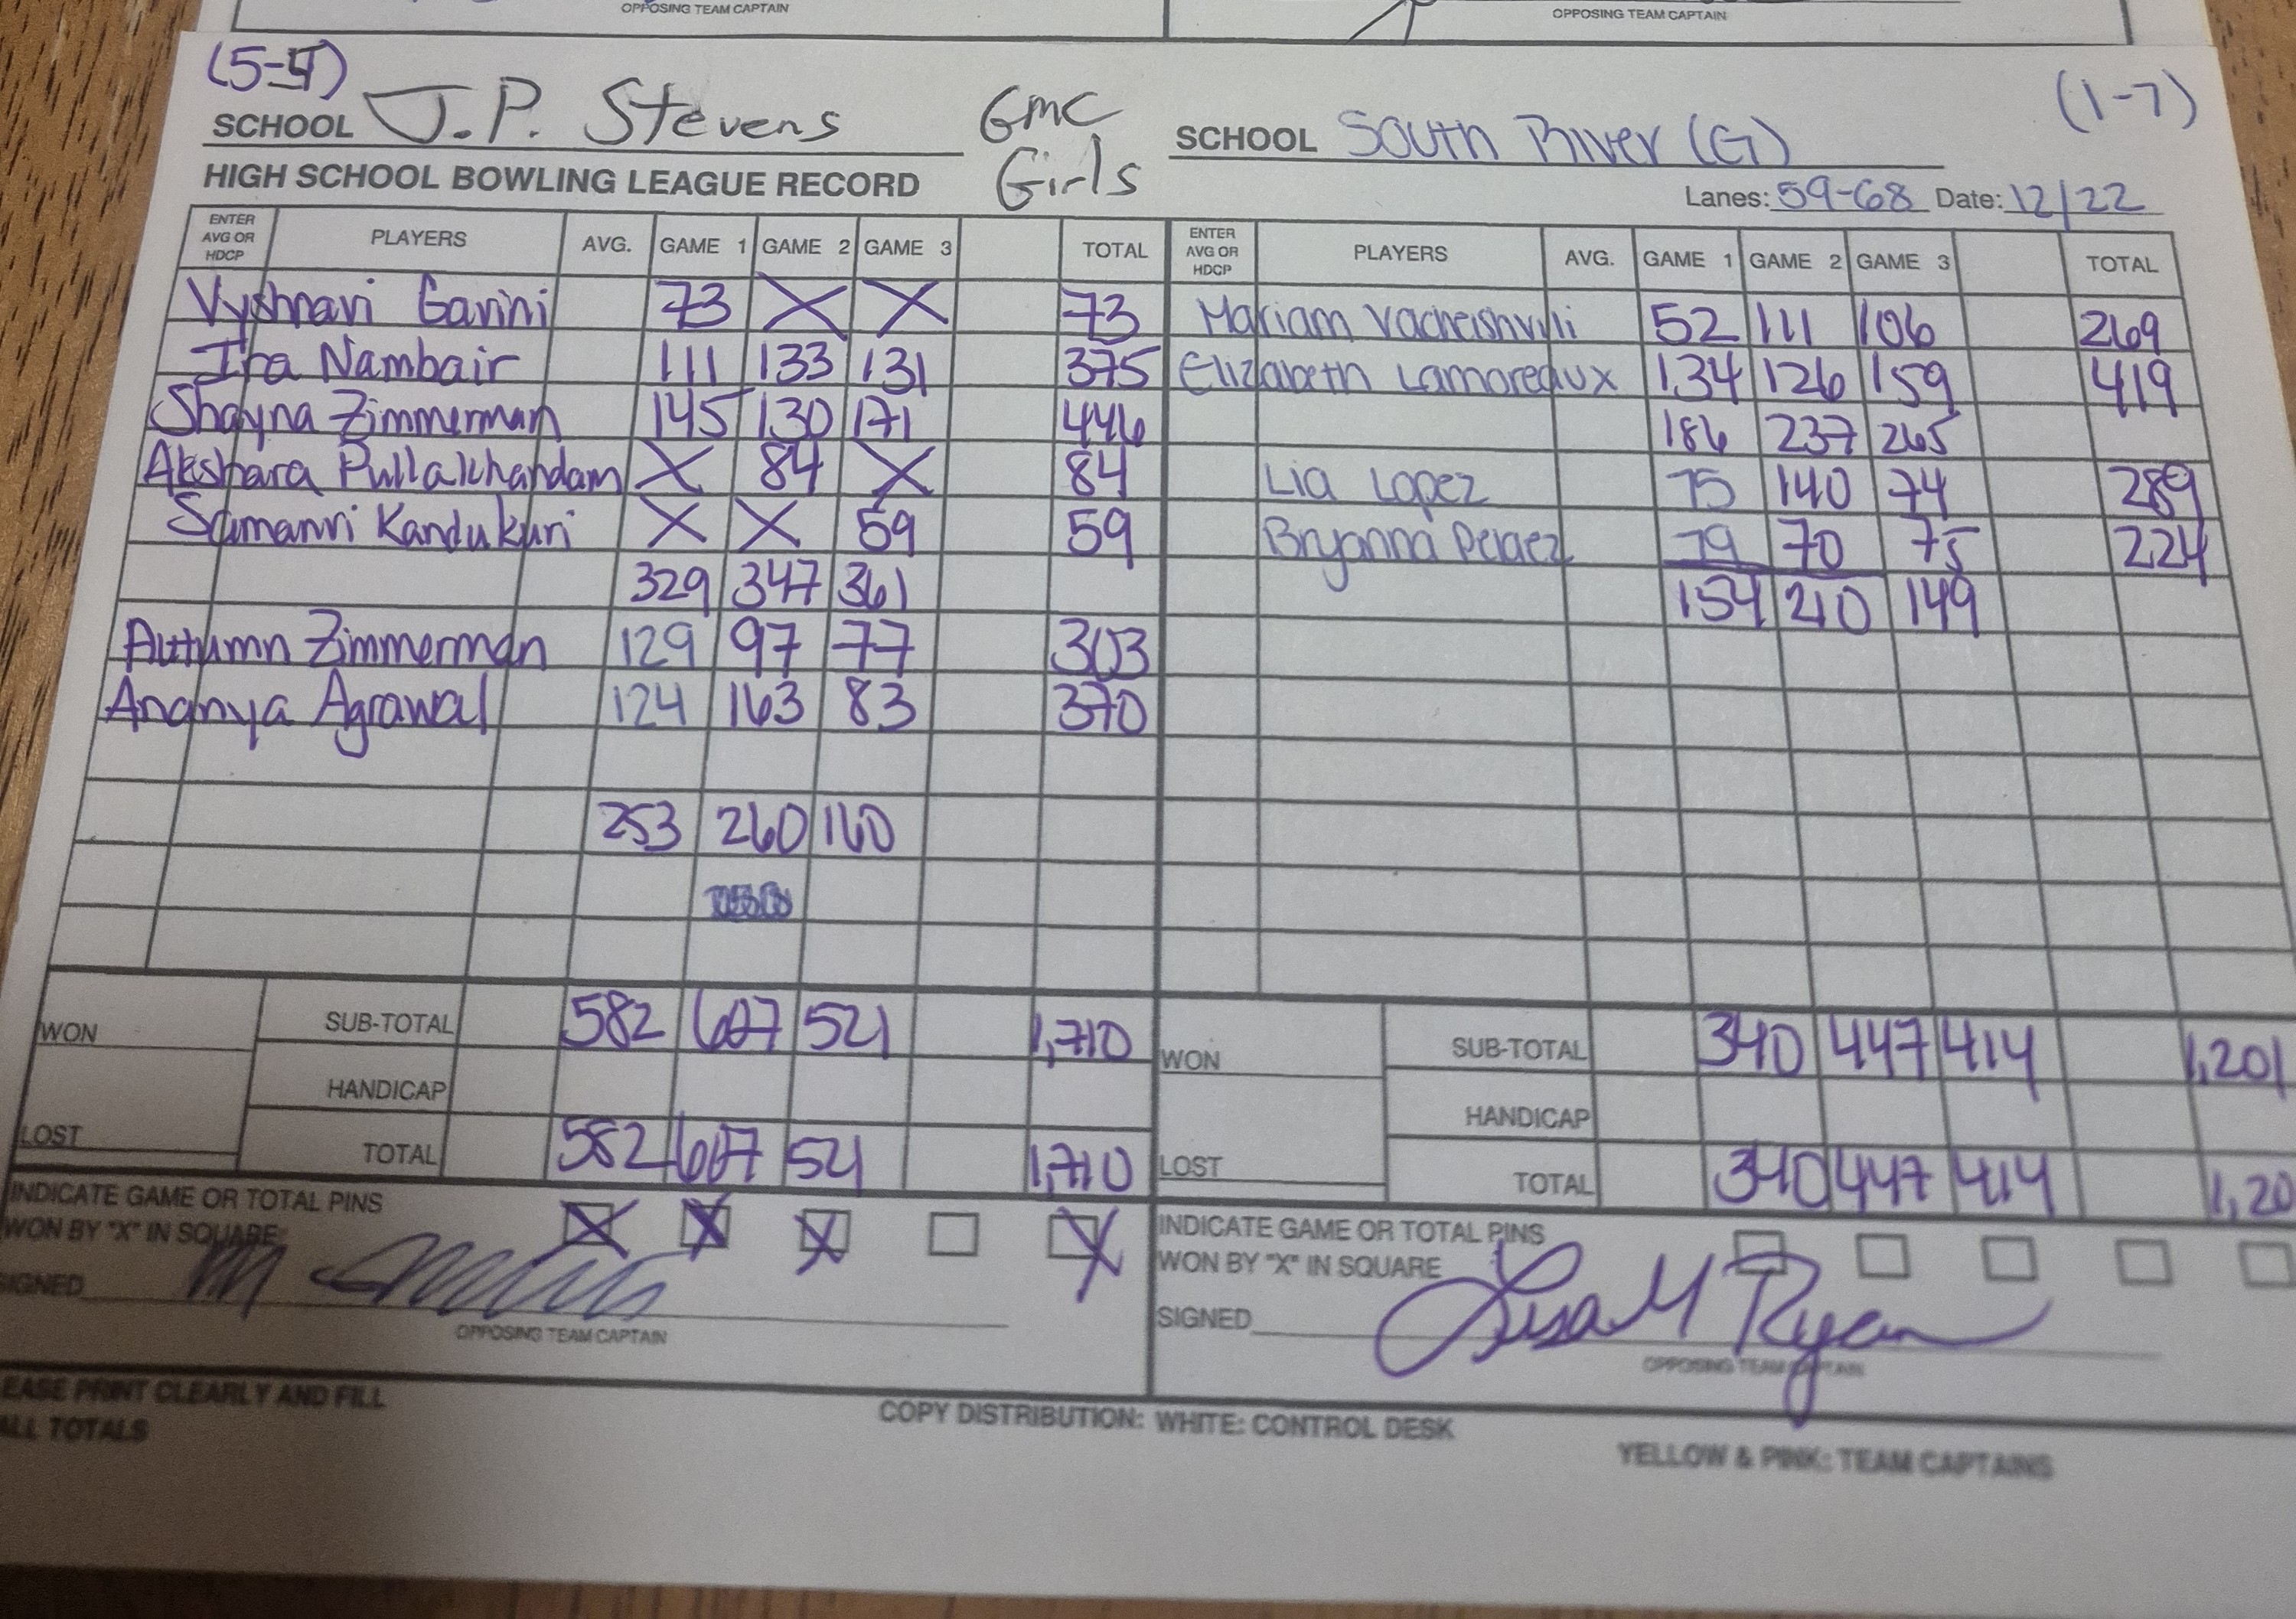 OPPOSING TEAM CAPTAIN OPPOSING TEAM CAPTAIN
(5-4) (1-7)
SCHOOL J.P. Stevens GMC Girls SCHOOL South River (G)
HIGH SCHOOL BOWLING LEAGUE RECORD Lanes: 59-68 Date: 12/22
ENTER AVG OR HDCP PLAYERS AVG. GAME 1 GAME 2 GAME 3 TOTAL ENTER AVG OR HDCP PLAYERS AVG. GAME 1 GAME 2 GAME 3 TOTAL
Vyshnavi Gavini 73 X X 73 Mariam Vacheishvili 52 111 106 269
Ira Nambair 111 133 131 375 Elizabeth Lamoreaux 134 126 159 419
Shayna Zimmerman 145 130 171 446 186 237 265
Akshara Pullakhandam X 84 X 84 Lia Lopez 75 140 74 289
Samanvi Kandukuri X X 59 59 Bryanna Pelaez 79 70 75 224
329 347 361 154 210 149
Autumn Zimmerman 129 97 77 303
Ananya Agrawal 124 163 83 370
253 260 160
WON SUB-TOTAL 582 607 521 1,710 WON SUB-TOTAL 340 447 414 1,201
HANDICAP HANDICAP
LOST TOTAL 582 607 521 1,710 LOST TOTAL 340 447 414 1,20
INDICATE GAME OR TOTAL PINS INDICATE GAME OR TOTAL PINS
WON BY "X" IN SQUARE X X X X WON BY "X" IN SQUARE
SIGNED SIGNED Lisa M Ryan
OPPOSING TEAM CAPTAIN OPPOSING TEAM CAPTAIN
EASE PRINT CLEARLY AND FILL
ALL TOTALS
COPY DISTRIBUTION: WHITE: CONTROL DESK
YELLOW & PINK: TEAM CAPTAINS